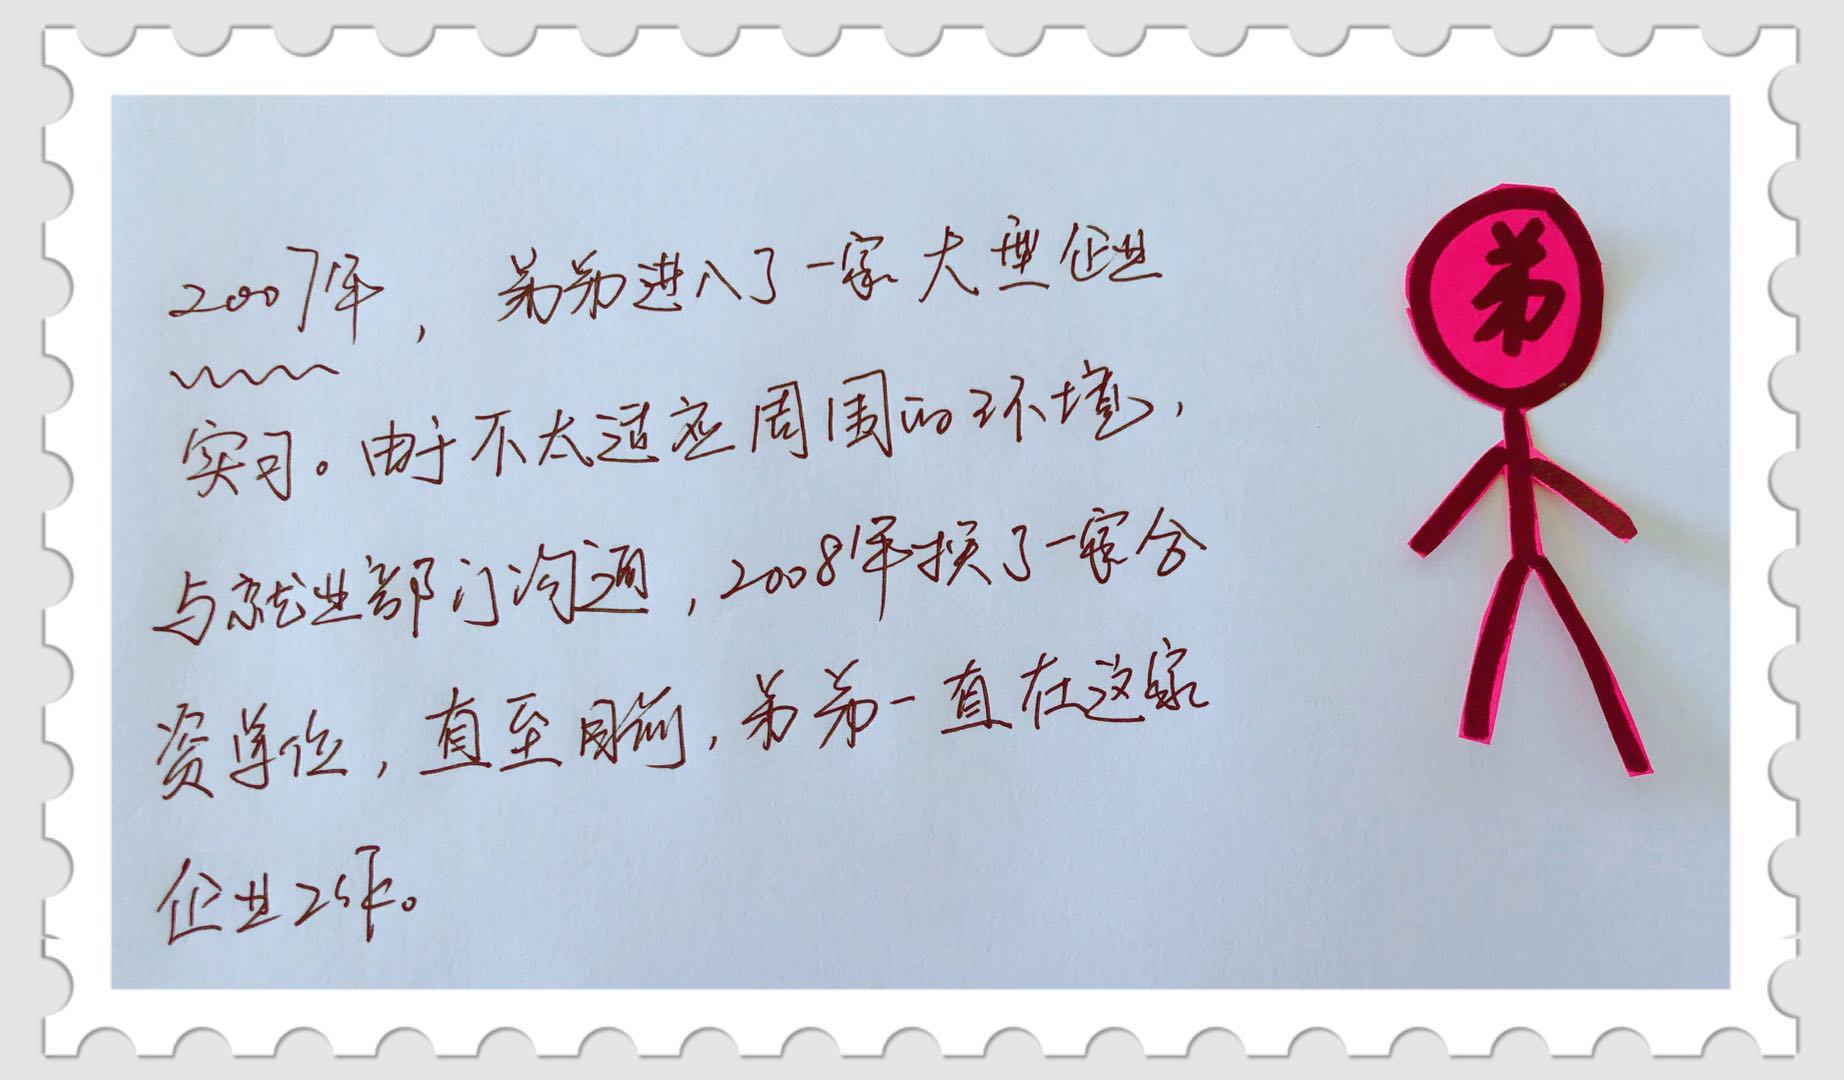 2007年，弟弟进入了一家大型企业
实习。由于不太适应周围的环境，
与就业部门沟通，2008年换了一家合
资单位，直至目前，弟弟一直在这家
企业工作。
弟